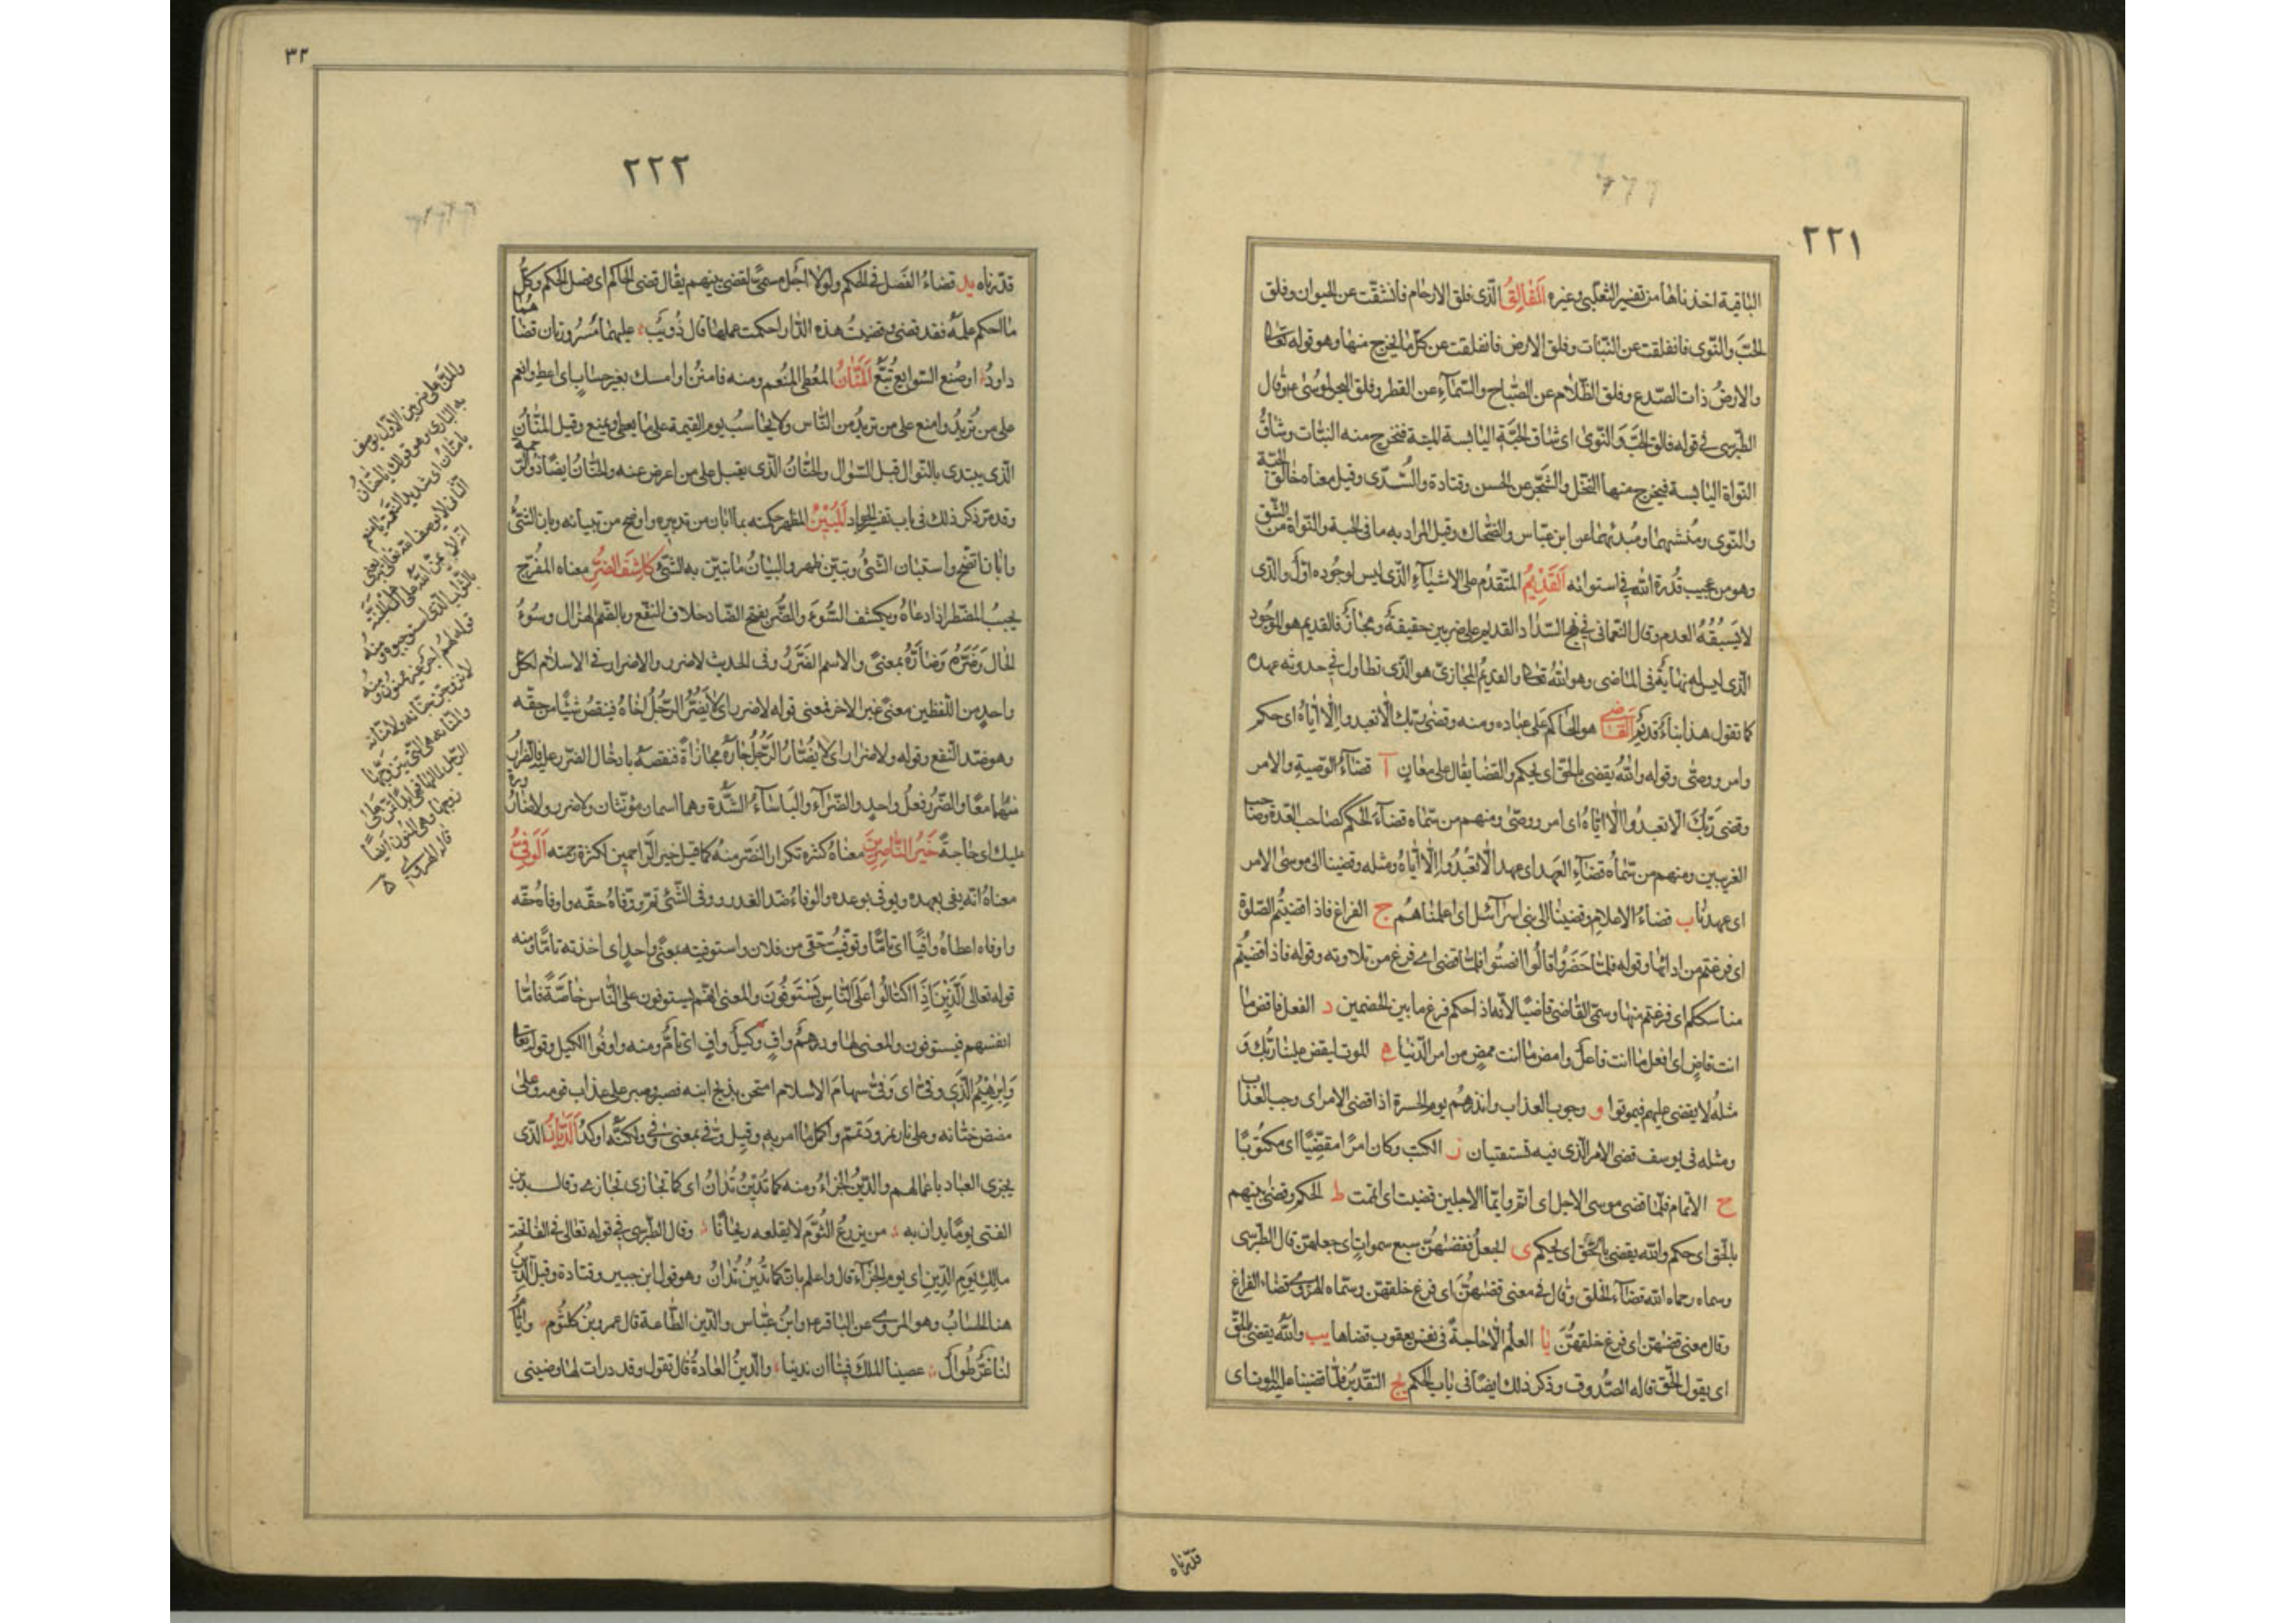 ٢٢١
الباقية اخذناها من تفسير الثعلبي وغيره الفالق الذى فلق الارحام فانشقت عن الحيوان وفلق
الحب والنوى فانفلقت عن النبات وفلق الارض فانفلقت عن كل ما يخرج منها وهو قوله تعالى
والارض ذات الصدع وفلق الظلام عن الصباح والسمآء عن القطر وفلق البحر لموسى ع وقال
الطبرسى فى قوله فالق الحب والنوى اى شاق الحبة اليابسة الميتة فتخرج منه النبات وشاق
النواة اليابسة فيخرج منها النخل والشجر عن الحسن وقتادة والسدى وقيل معناه خالق الحبة
والنوى ومنشيهما ومبديهما عن ابن عباس والضحاك وقيل المراد به ما فى الحبة والنواة من الشق
وهو من عجيب قدرة الله فى استوائه القديم المتقدم على الاشيآء الذى ليس لوجوده اول والذى
لا يسبقه العدم وقال النعمانى فى نهج السداد القديم على ضربين حقيقة ومجاز فالقديم هو الموجود
الذى ليس له نهاية فى الماضى وهو الله تعالى والقديم المجازى هو الذى تطاول فى حدوثه عهده
كما تقول هذا بناء قديم القاضى هو الحاكم على عباده ومنه وقضى ربك الا تعبدوا الا اياه اى حكم
وامر ووصى وقوله والله يقضى بالحق اى يحكم والقضا يقال على معان آ قضآء الوصية والامر
وقضى ربك الا تعبدوا الا اياه اى امر ووصى ومنهم من سماه قضآء الحكم كصاحب العدة وصاحب
الغريبين ومنهم من سماه قضآء العهد اى عهد الا تعبدوا الا اياه ومثله وقضينا الى موسى الامر
اى عهدنا ب قضاء الاعلام وقضينا الى بنى اسرآئيل اى اعلمناهم ج الفراغ فاذا قضيتم الصلوة
اى فرغتم من ادائها وقوله فلما حضروه قالوا انصتوا فلما قضى اى فرغ من تلاوته وقوله فاذا قضيتم
مناسككم اى فرغتم منها وسمى القاضى قاضيا لانه اذا حكم فرغ ما بين الخصمين د الفعل فاقض ما
انت قاض اى افعل ما انت فاعل وامض ما انت ممض من امر الدنيا ه الموت ليقض علينا ربك و
مثله لا يقضى عليهم فيموتوا و وجوب العذاب وانذرهم يوم الحسرة اذا قضى الامر اى وجب العذاب
ومثله فى يوسف قضى الامر الذى فيه تستفتيان ز الكتب وكان امرا مقضيا اى مكتوبا
ح الاتمام فلما قضى موسى الاجل اى اتم وايما الاجلين قضيت اى اتممت ط الحكم وقضى بينهم
بالحق اى حكم والله يقضى بالحق اى يحكم ى الجعل فقضيهن سبع سموات اى جعلهن قال الطبرسى
وسماه رحمه الله قضآء الخلق وقال فى معنى قضيهن اى فرغ خلقهن وسماه الهروى قضاء الفراغ
وقال معنى قضيهن اى فرغ خلقهن يا العلم الا حاجة فى نفس يعقوب قضاها يب والله يقضى بالحق
اى يقول الحق قاله الصدوق وذكر ذلك ايضا فى باب الحكم يج التقدير فلما قضينا عليه الموت اى
قدرناه
٣٢
٢٢٢
قدرناه يد قضاء الفصل فى الحكم ولولا اجل مسمى لقضى بينهم يقال قضى الحاكم اى فصل الحكم وكل
ما احكم علمه فقد قضى وقضيت هذه الدار احكمت عملها قال ذويب وعليهما مسرودتان قضاهما
داود او صنع السوابغ تبع المنان المعطى المنعم ومنه فامنن او امسك بغير حساب اى اعط وانعم
على من تريد وامنع على من تريد من الناس ولا يحاسب يوم القيمة على ما يعطى ويمنع وقيل المنان
الذى يبتدى بالنوال قبل السؤال والحنان الذى يقبل على من اعرض عنه والحنان ايضا ذو الرحمة
وقد مر ذكر ذلك فى باب تفسير الجواد المبين المظهر حكمته بما ابان من تدبيره واوضح من تبيانه وبان الشئ
وابان اتضح واستبان الشئ وتبين ظهر والبيان ما تبين به الشئ كاشف الضر معناه المفرج
يجيب المضطر اذا دعاه ويكشف السوء والضر بفتح الضاد خلاف النفع وبالضم الهزال وسوء
الحال وضره وضاره بمعنى والاسم الضرر وفى الحديث لا ضرر ولا اضرار فى الاسلام لكل
واحد من اللفظين معنى غير الاخر فمعنى قوله لا ضرر اى لا يضر الرجل اخاه فينقص شيئا من حقه
وهو ضد النفع وقوله ولا ضرار اى لا يضار الرجل جاره مجازاة فنقصه بادخال الضرر عليه فالضرار
منهما معا والضرر فعل واحد والضرآء والباسآء الشدة وهما اسمان مؤنثان ولا ضرر ولا ضارورة
عليك اى حاجة خير الناصرين معناه كثرة تكرار النصر منه كما قيل خير الراحمين لكثرة رحمته الوفى
معناه انه يفى بعهده ويوفى بوعده والوفاء ضد الغدر ووفى الشئ تم ووفاه حقه واوفاه حقه
واوفاه اعطاه وافيا اى تاما وتوفيت حقى من فلان واستوفيته بمعنى واحد اى اخذته تاما ومنه
قوله تعالى الذين اذا اكتالوا على الناس يستوفون والمعنى انهم يستوفون على الناس خاصة فاما
انفسهم فيستوفون والمعنى لها ودرهم واف وكيل واف اى تام ومنه واوفوا الكيل وقوله تعالى
وابرهيم الذى وفى اى وفى سهام الاسلام امتحن بذبح ابنه فصبر وصبر على عذاب قومه وعلى
مضض ختانه وعلى نار نمرود تمم واكمل ما امر به وقيل وفى بمعنى وفى ولكنه اوكد الديان الذى
يجزى العباد باعمالهم والدين الجزاء ومنه كما تدين تدان اى كما تجازى تجازى وقال يدين
الفتى يوما يدان به من يزرع الثوم لا يقلعه ريحانا وقال الطبرسى فى قوله تعالى فى الفاتحة
مالك يوم الدين اى يوم الجزآء قال واعلم بانك ما تدين تدان وهو قول ابن جبير وقتادة وقيل الدين
هنا الحساب وهو المروى عن الباقر ع وابن عباس والدين الطاعة قال عمرو بن كلثوم وايام
لنا غر طوال عصينا الملك فيها ان ندينا والدين العادة قال تقول وقد درات لها وضينى
والمن على ضربين الاول يوصف
به البارى وهو قولك يا حنان